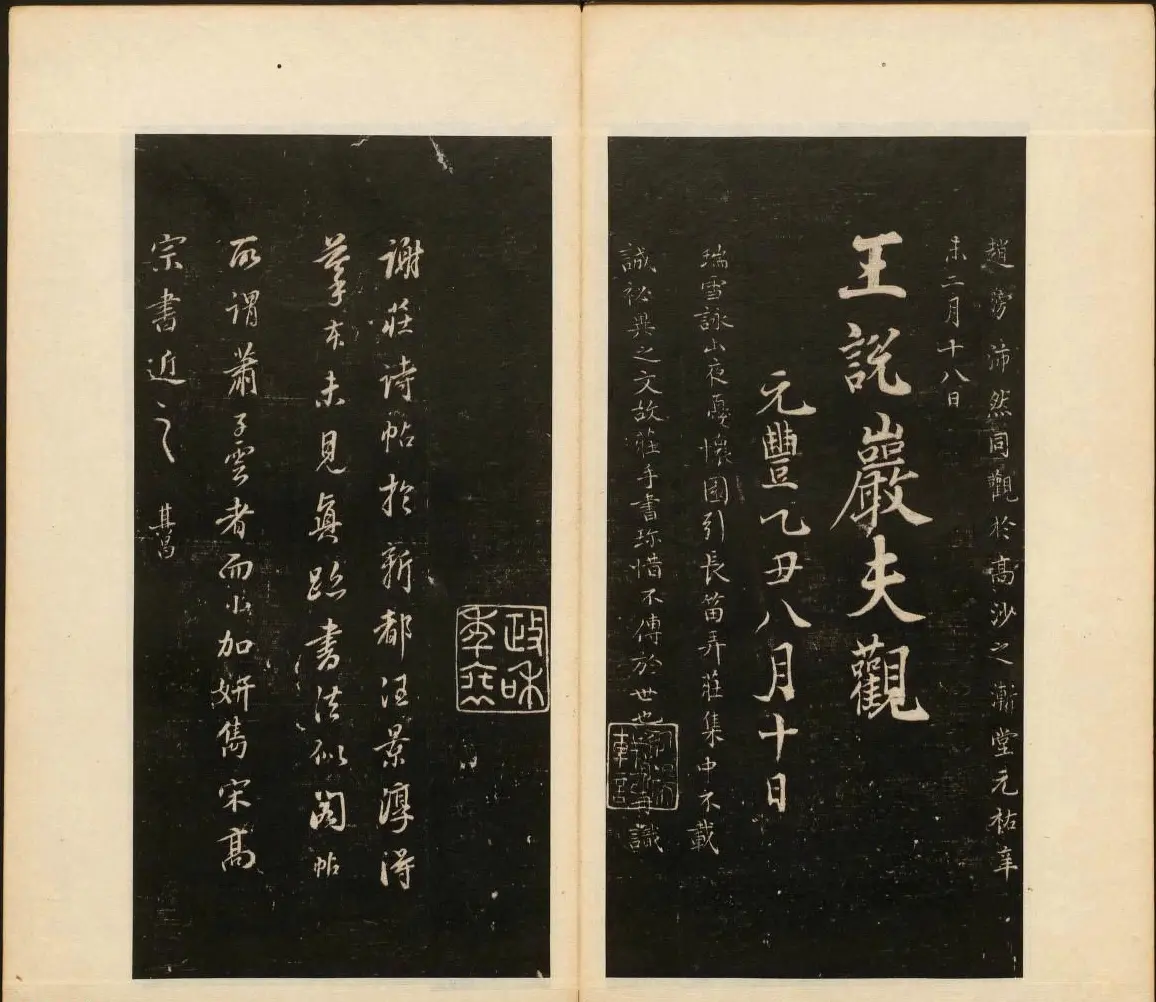 趙雱沛然同觀於高沙之漸堂元祐辛
未二月十八日
王說巖夫觀
元豐乙丑八月十日
瑞雪詠山夜憂懷園引長笛弄莊集中不載
誠祕異之文故莊手書珎惜不傳於世也識
政和
謝莊詩帖於新都汪景淳得
摹本未見真跡書法似閣帖
所謂蕭子雲者而少加妍雋宋高
宗書近之 其昌